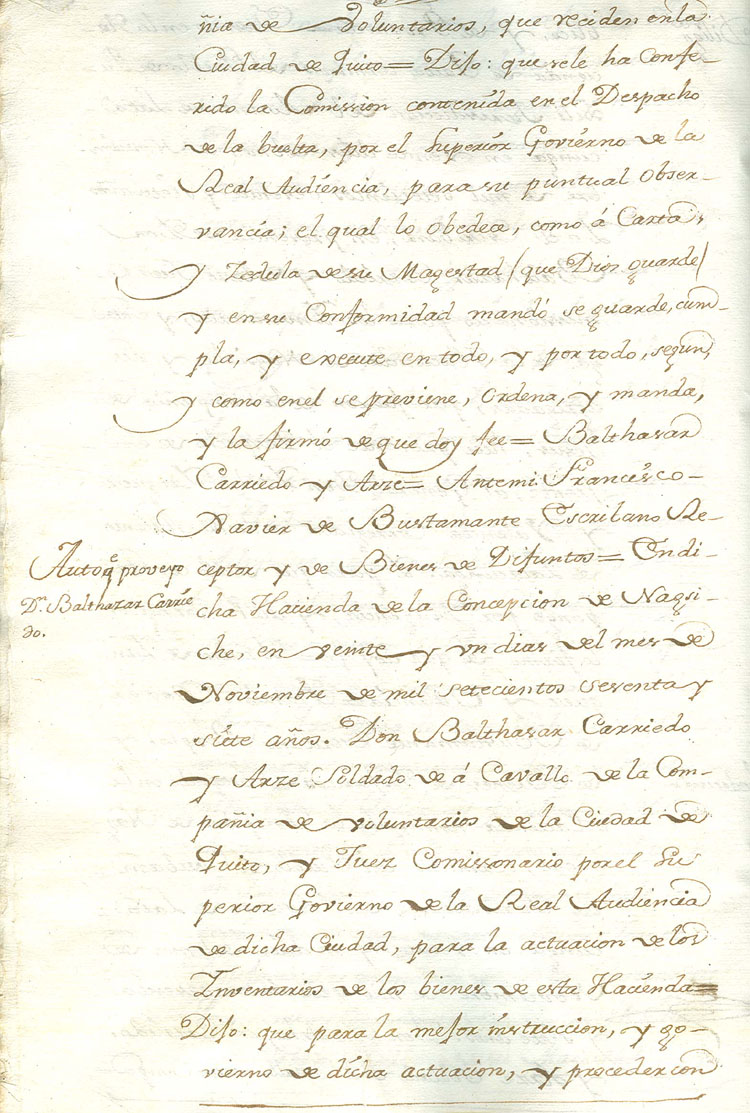 ñia de Voluntarios, que reciden en la
Ciudad de Quito= Dijo: que sele ha Confe-
rido la Comission contenida en el Despacho
de la buelta, por el Superior Govierno de la
Real Audiencia, para su puntual Obser-
vancia; el qual lo Obedece, como á Carta,
y Zedula de su Magestad (que Dios guarde)
y en su Conformidad mandó se guarde, cum-
pla, y execute en todo, y por todo, segun,
y como enel se previene, Ordena, y manda,
y la firmó de que doy fee= Balthasar
Carriedo y Arze= Antemi Francisco
Xavier de Bustamante Escrivano Re-
ceptor y de Bienes de Difuntos= En di-
Auto q̃ proveyo
Dn. Balthazar Carrie
do.
cha Hacienda de la Concepcion de Nagsi-
che, en veinte y un dias del mes de
Noviembre de mil setecientos sesenta y
siete años. Don Balthasar Carriedo
y Arze Soldado de á Cavallo de la Com-
pañia de voluntarios de la Ciudad de
Quito, y Juez Comissonario por el Su
perior Govierno de la Real Audiencia
de dicha Ciudad, para la actuacion de los
Inventarios de los bienes de esta Hacienda=
Dijo: que para la mejor instruccion, y go-
vierno de dicha actuacion, y proceder con